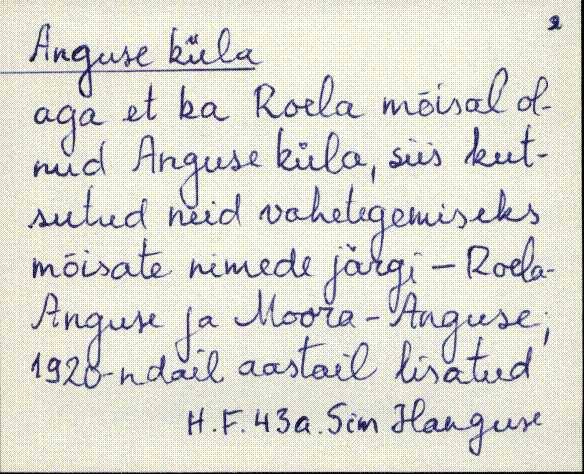 2
Anguse küla
aga et ka Roela mõisal ol-
nud Anguse küla, siis kut-
sutud neid vahetegemiseks
mõisate nimede järgi – Roela-
Anguse ja Moora-Anguse;
1920-ndail aastail lisatud
H.F. 43a. Sim Hanguse